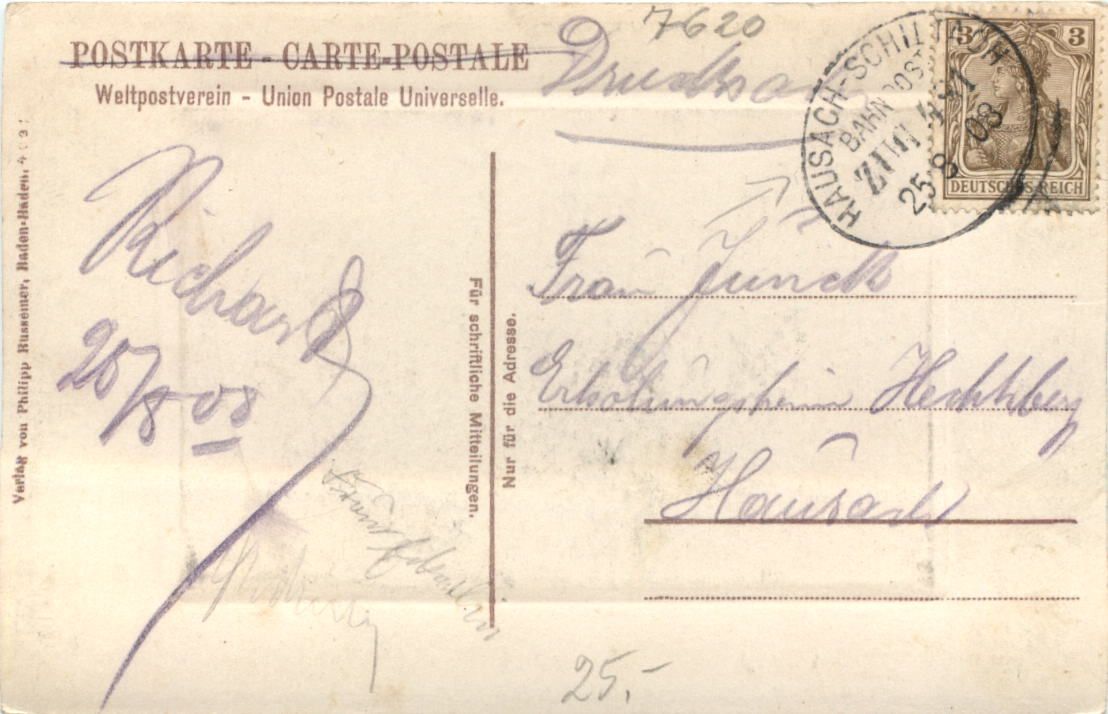 7620
POSTKARTE - CARTE-POSTALE
Drucksache
Weltpostverein - Union Postale Universelle.
HAUSACH-SCHILTACH
BAHNPOST
ZUG
25 8 08
3 3
DEUTSCHES REICH
Verlag von Philipp Bussemer, Baden-Baden.
Richard
25/8 08
Für schriftliche Mitteilungen.
Nur für die Adresse.
Frau Junck
Erholungsheim Hechtsberg
Hausach
25.-